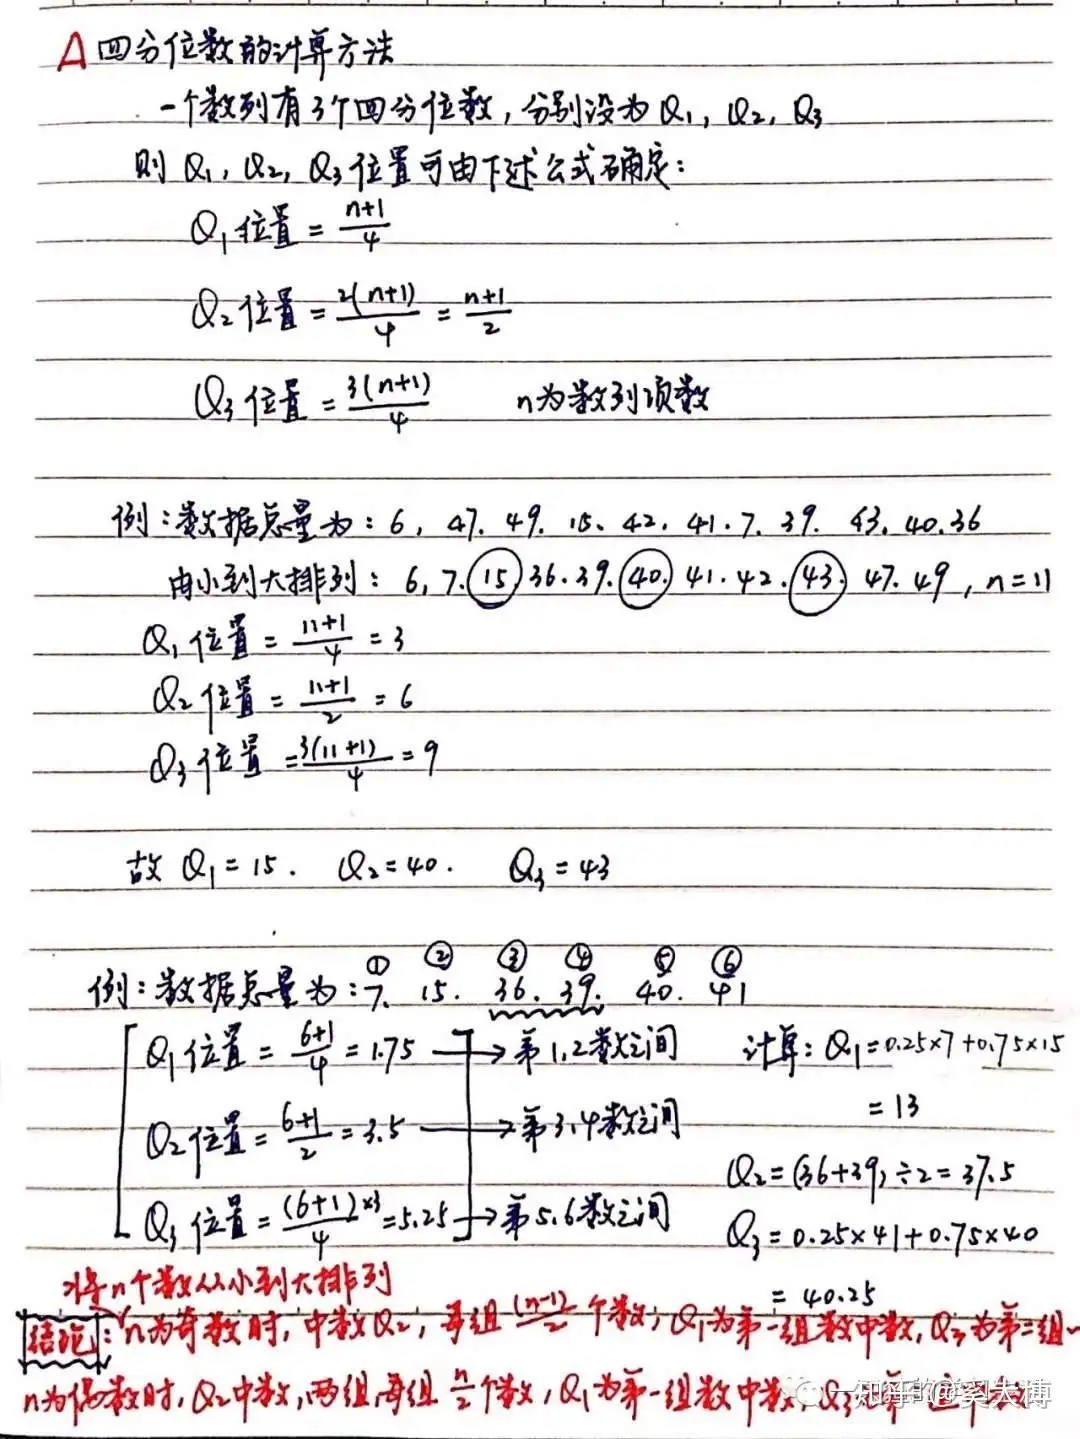 A 四分位数的计算方法
一个数列有3个四分位数，分别设为Q1，Q2，Q3
则Q1，Q2，Q3位置可由下述公式确定：
Q1位置 = (n+1)/4
Q2位置 = 2(n+1)/4 = (n+1)/2
Q3位置 = 3(n+1)/4 n为数列项数
例：数据总量为：6，47. 49. 15、42，41.7. 39. 43. 40.36
由小到大排列：6，7. 15 36.39. 40. 41.42. 43. 47.49，n=11
Q1位置 = (11+1)/4 = 3
Q2位置 = (11+1)/2 = 6
Q3位置 = 3(11+1)/4 = 9
故 Q1=15. Q2=40. Q3=43
① ② ③ ④ ⑤ ⑥
例：数据总量为：7. 15. 36. 39. 40. 41
Q1位置 = (6+1)/4 = 1.75 → 第1.2数之间 计算：Q1=0.25×7+0.75×15
=13
Q2位置 = (6+1)/2 = 3.5 → 第3.4数之间
Q2=(36+39)÷2=37.5
Q3位置 = (6+1)×3/4 = 5.25 → 第5.6数之间 Q3=0.25×41+0.75×40
= 40.25
将n个数从小到大排列
结论：n为奇数时，中数Q2，每组(n-1)/2个数，Q1为第一组数中数，Q3为第二组
n为偶数时，Q2中数，两组，每组n/2个数，Q1为第一组数中数，Q3
知乎 @奚大博